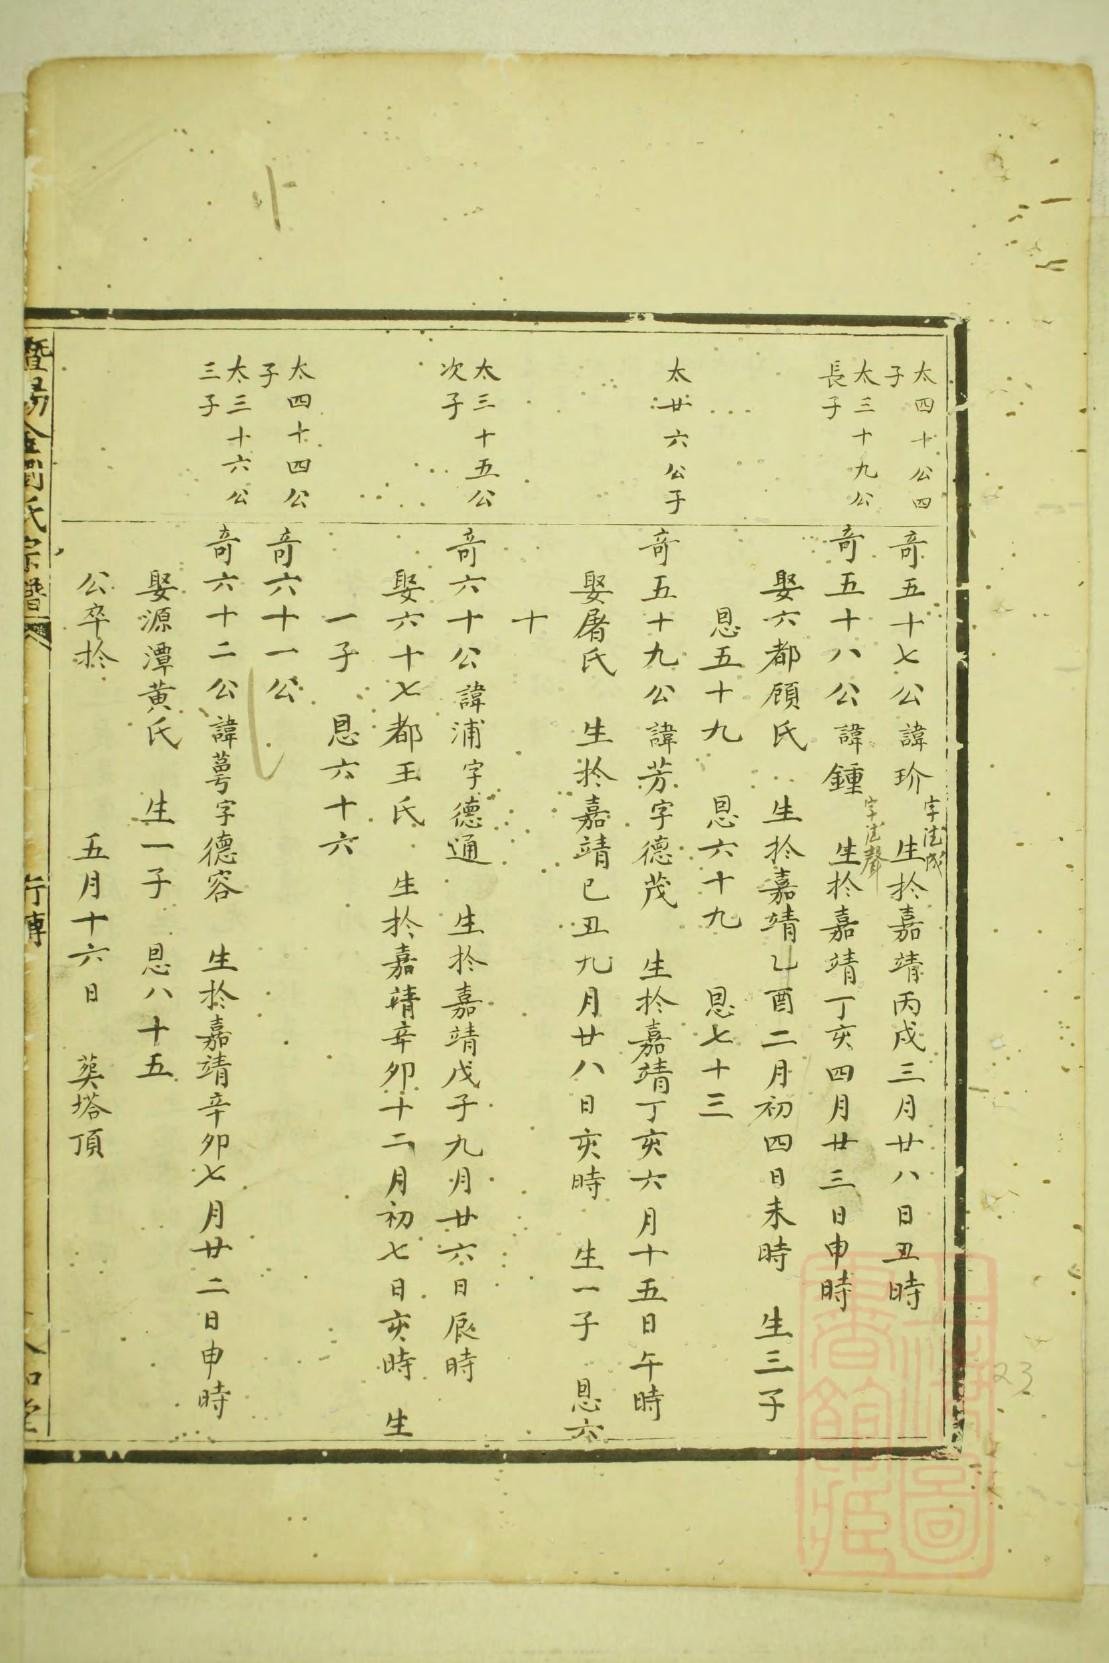 太四十公四子
奇五十七公諱玠 生於嘉靖丙戌三月廿八日丑時
字德成
太三十九公長子
奇五十八公諱鍾 生於嘉靖丁亥四月廿三日申時
字德聲
娶六都顧氏 生於嘉靖乙酉二月初四日未時 生三子
恩五十九 恩六十九 恩七十三
太廿六公子
奇五十九公諱芳字德茂 生於嘉靖丁亥六月十五日午時
娶屠氏 生於嘉靖己丑九月廿八日亥時 生一子 恩六
十
太三十五公次子
奇六十公諱浦字德通 生於嘉靖戊子九月廿六日辰時
娶六十七都王氏 生於嘉靖辛卯十二月初七日亥時 生
一子 恩六十六
太四十四公子
奇六十一公
太三十六公三子
奇六十二公諱萼字德容 生於嘉靖辛卯七月廿二日申時
娶源潭黄氏 生一子 恩八十五
公卒於 五月十六日 葬塔頂
暨陽 氏宗譜
行傳
上海圖書館藏
23